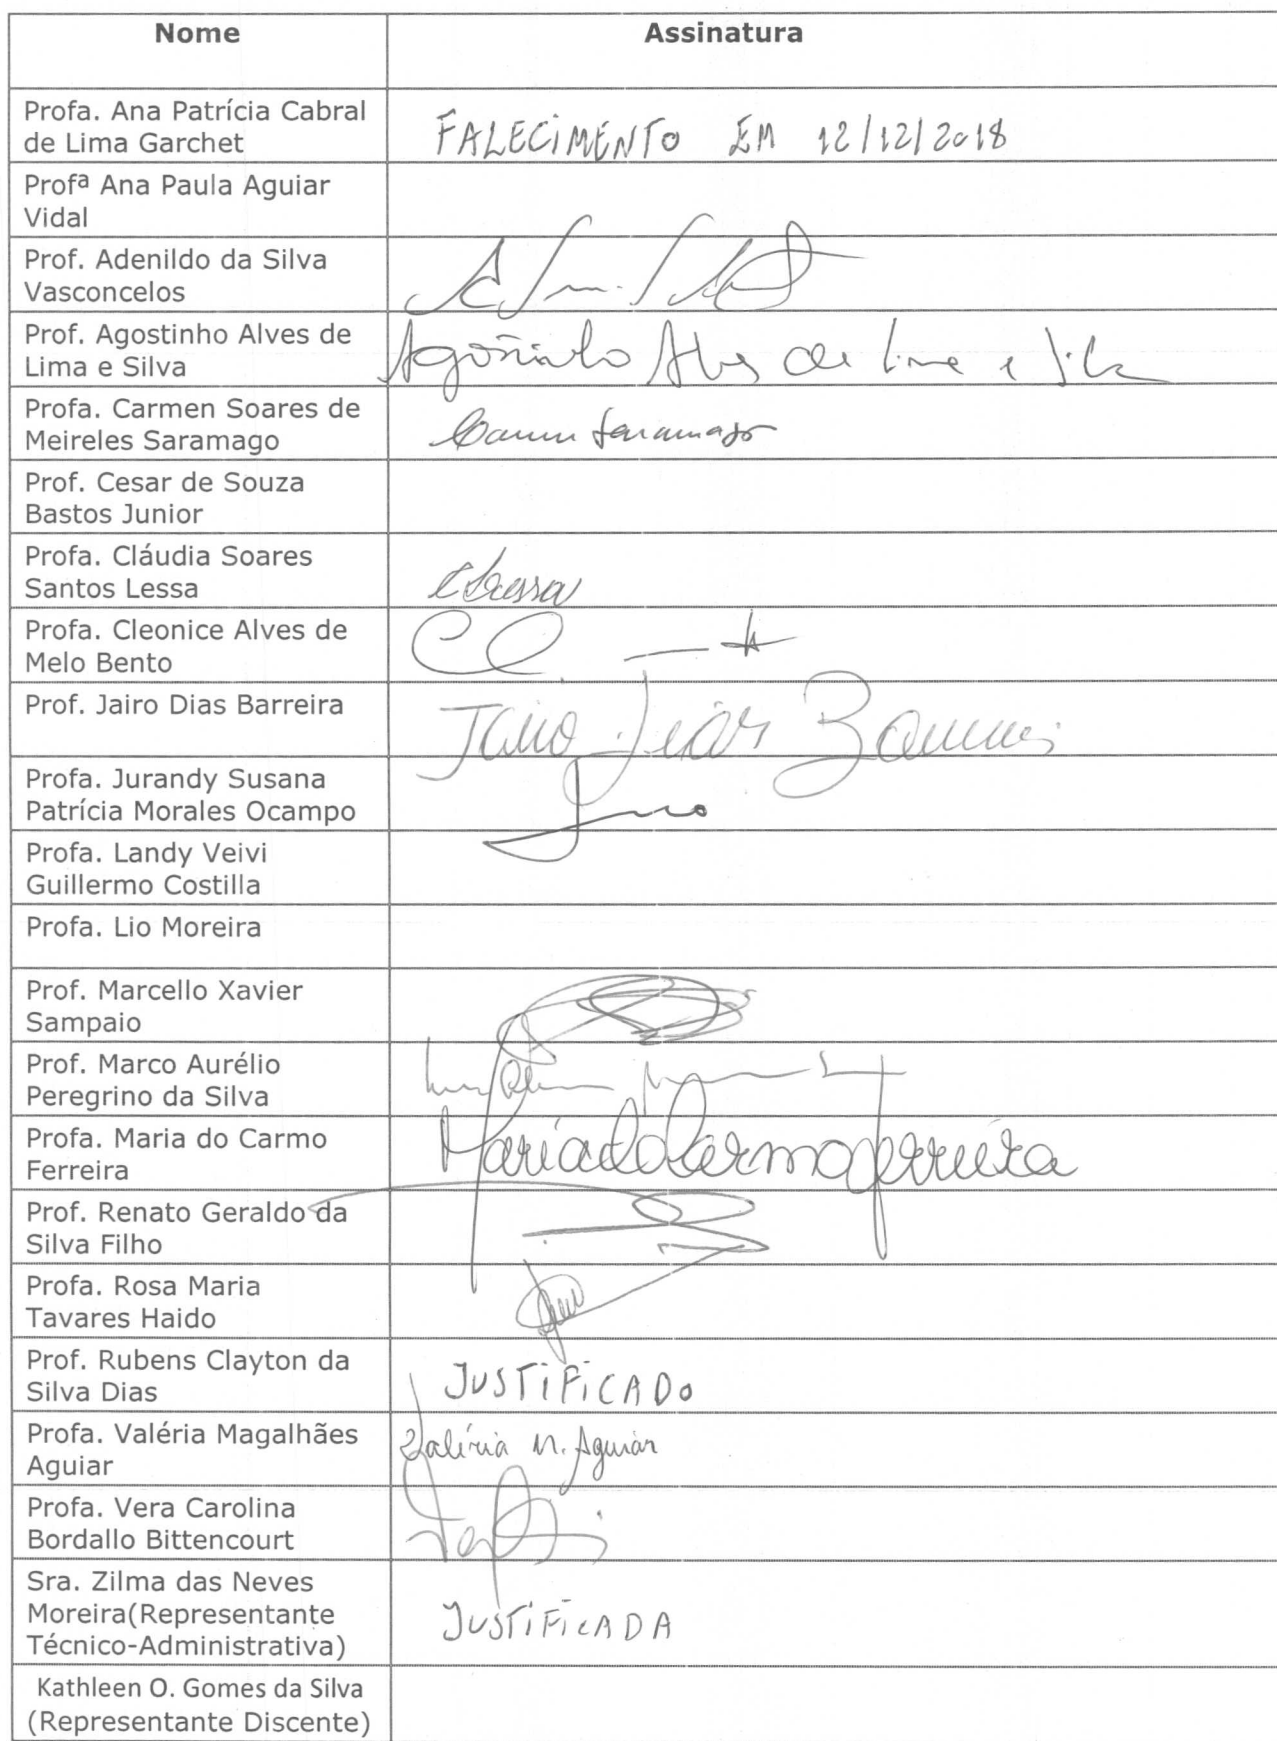 Nome Assinatura
Profa. Ana Patrícia Cabral
de Lima Garchet
FALECIMENTO EM 12/12/2018
Profª Ana Paula Aguiar
Vidal
Prof. Adenildo da Silva
Vasconcelos
Prof. Agostinho Alves de
Lima e Silva
Agostinho Alves de Lima e Silva
Profa. Carmen Soares de
Meireles Saramago
Carmen Saramago
Prof. Cesar de Souza
Bastos Junior
Profa. Cláudia Soares
Santos Lessa
Profa. Cleonice Alves de
Melo Bento
Prof. Jairo Dias Barreira
Jairo Dias Barreira
Profa. Jurandy Susana
Patrícia Morales Ocampo
Profa. Landy Veivi
Guillermo Costilla
Profa. Lio Moreira
Prof. Marcello Xavier
Sampaio
Prof. Marco Aurélio
Peregrino da Silva
Profa. Maria do Carmo
Ferreira
Maria do Carmo Ferreira
Prof. Renato Geraldo da
Silva Filho
Profa. Rosa Maria
Tavares Haido
Prof. Rubens Clayton da
Silva Dias
JUSTIFICADO
Profa. Valéria Magalhães
Aguiar
Valéria M. Aguiar
Profa. Vera Carolina
Bordallo Bittencourt
Sra. Zilma das Neves
Moreira(Representante
Técnico-Administrativa)
JUSTIFICADA
Kathleen O. Gomes da Silva
(Representante Discente)